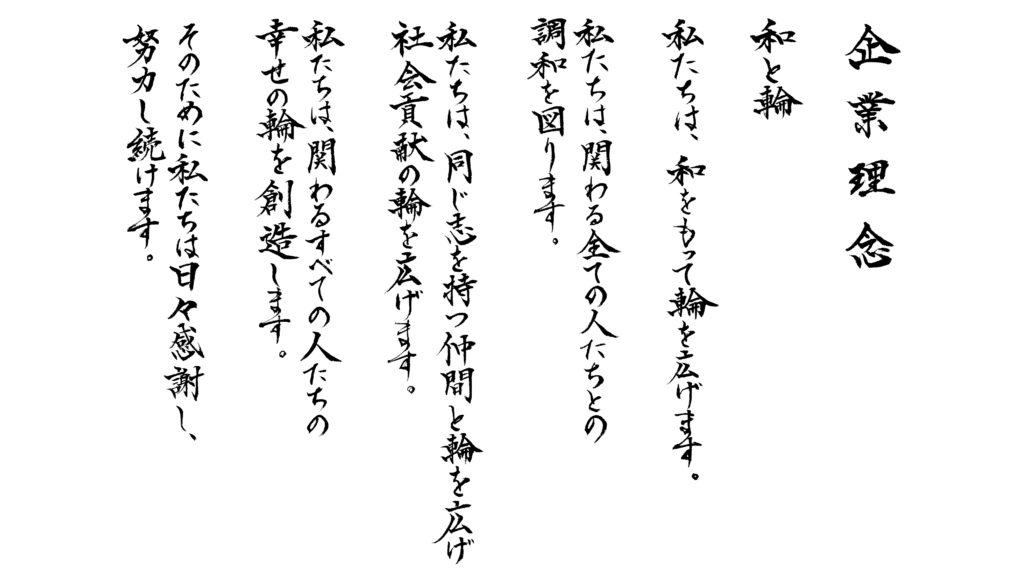 企業理念
和と輪
私たちは、和をもって輪を広げます。
私たちは、関わる全ての人たちとの
調和を図ります。
私たちは、同じ志を持つ仲間と輪を広げ
社会貢献の輪を広げます。
私たちは、関わるすべての人たちの
幸せの輪を創造します。
そのために私たちは日々感謝し、
努力し続けます。